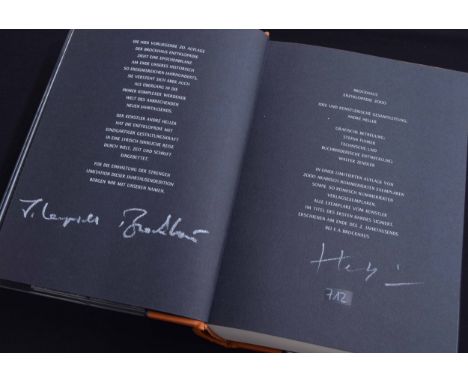 DIE HIER VORLIEGENDE 20. AUFLAGE
DER BROCKHAUS ENZYKLOPÄDIE
ZIEHT EINE EPOCHENBILANZ
AM ENDE UNSERES HISTORISCH
SO EREIGNISREICHEN JAHRHUNDERTS.
SIE VERSTEHT SICH ABER AUCH
ALS ÜBERGANG IN DIE
IMMER KOMPLEXER WERDENDE
WELT DES ANBRECHENDEN
NEUEN JAHRTAUSENDS.
DER KÜNSTLER ANDRÉ HELLER
HAT DIE ENZYKLOPÄDIE MIT
EINZIGARTIGER GESTALTUNGSKRAFT
IN EINE LYRISCH SINNLICHE REISE
DURCH WELT, ZEIT UND SCHRIFT
EINGEBETTET.
FÜR DIE EINHALTUNG DER STRENGEN
LIMITATION DIESER JAHRTAUSENDEDITION
BÜRGEN WIR MIT UNSEREN NAMEN.
Brockhaus
BROCKHAUS
ENZYKLOPÄDIE 2000
IDEE UND KÜNSTLERISCHE GESAMTLEITUNG:
ANDRÉ HELLER
GRAFISCHE BETREUUNG:
STEFAN FUHRER
TECHNISCHE UND
BUCHBINDERISCHE ENTWICKLUNG:
WALTER ZENDLER
IN EINER LIMITIERTEN AUFLAGE VON
2000 ARABISCH NUMMERIERTEN EXEMPLAREN
SOWIE 50 RÖMISCH NUMMERIERTER
VERLAGSEXEMPLAREN.
ALLE EXEMPLARE VOM KÜNSTLER
IM TITEL DES ERSTEN BANDES SIGNIERT.
ERSCHIENEN AM ENDE DES 2. JAHRTAUSENDS
BEI F.A. BROCKHAUS
712